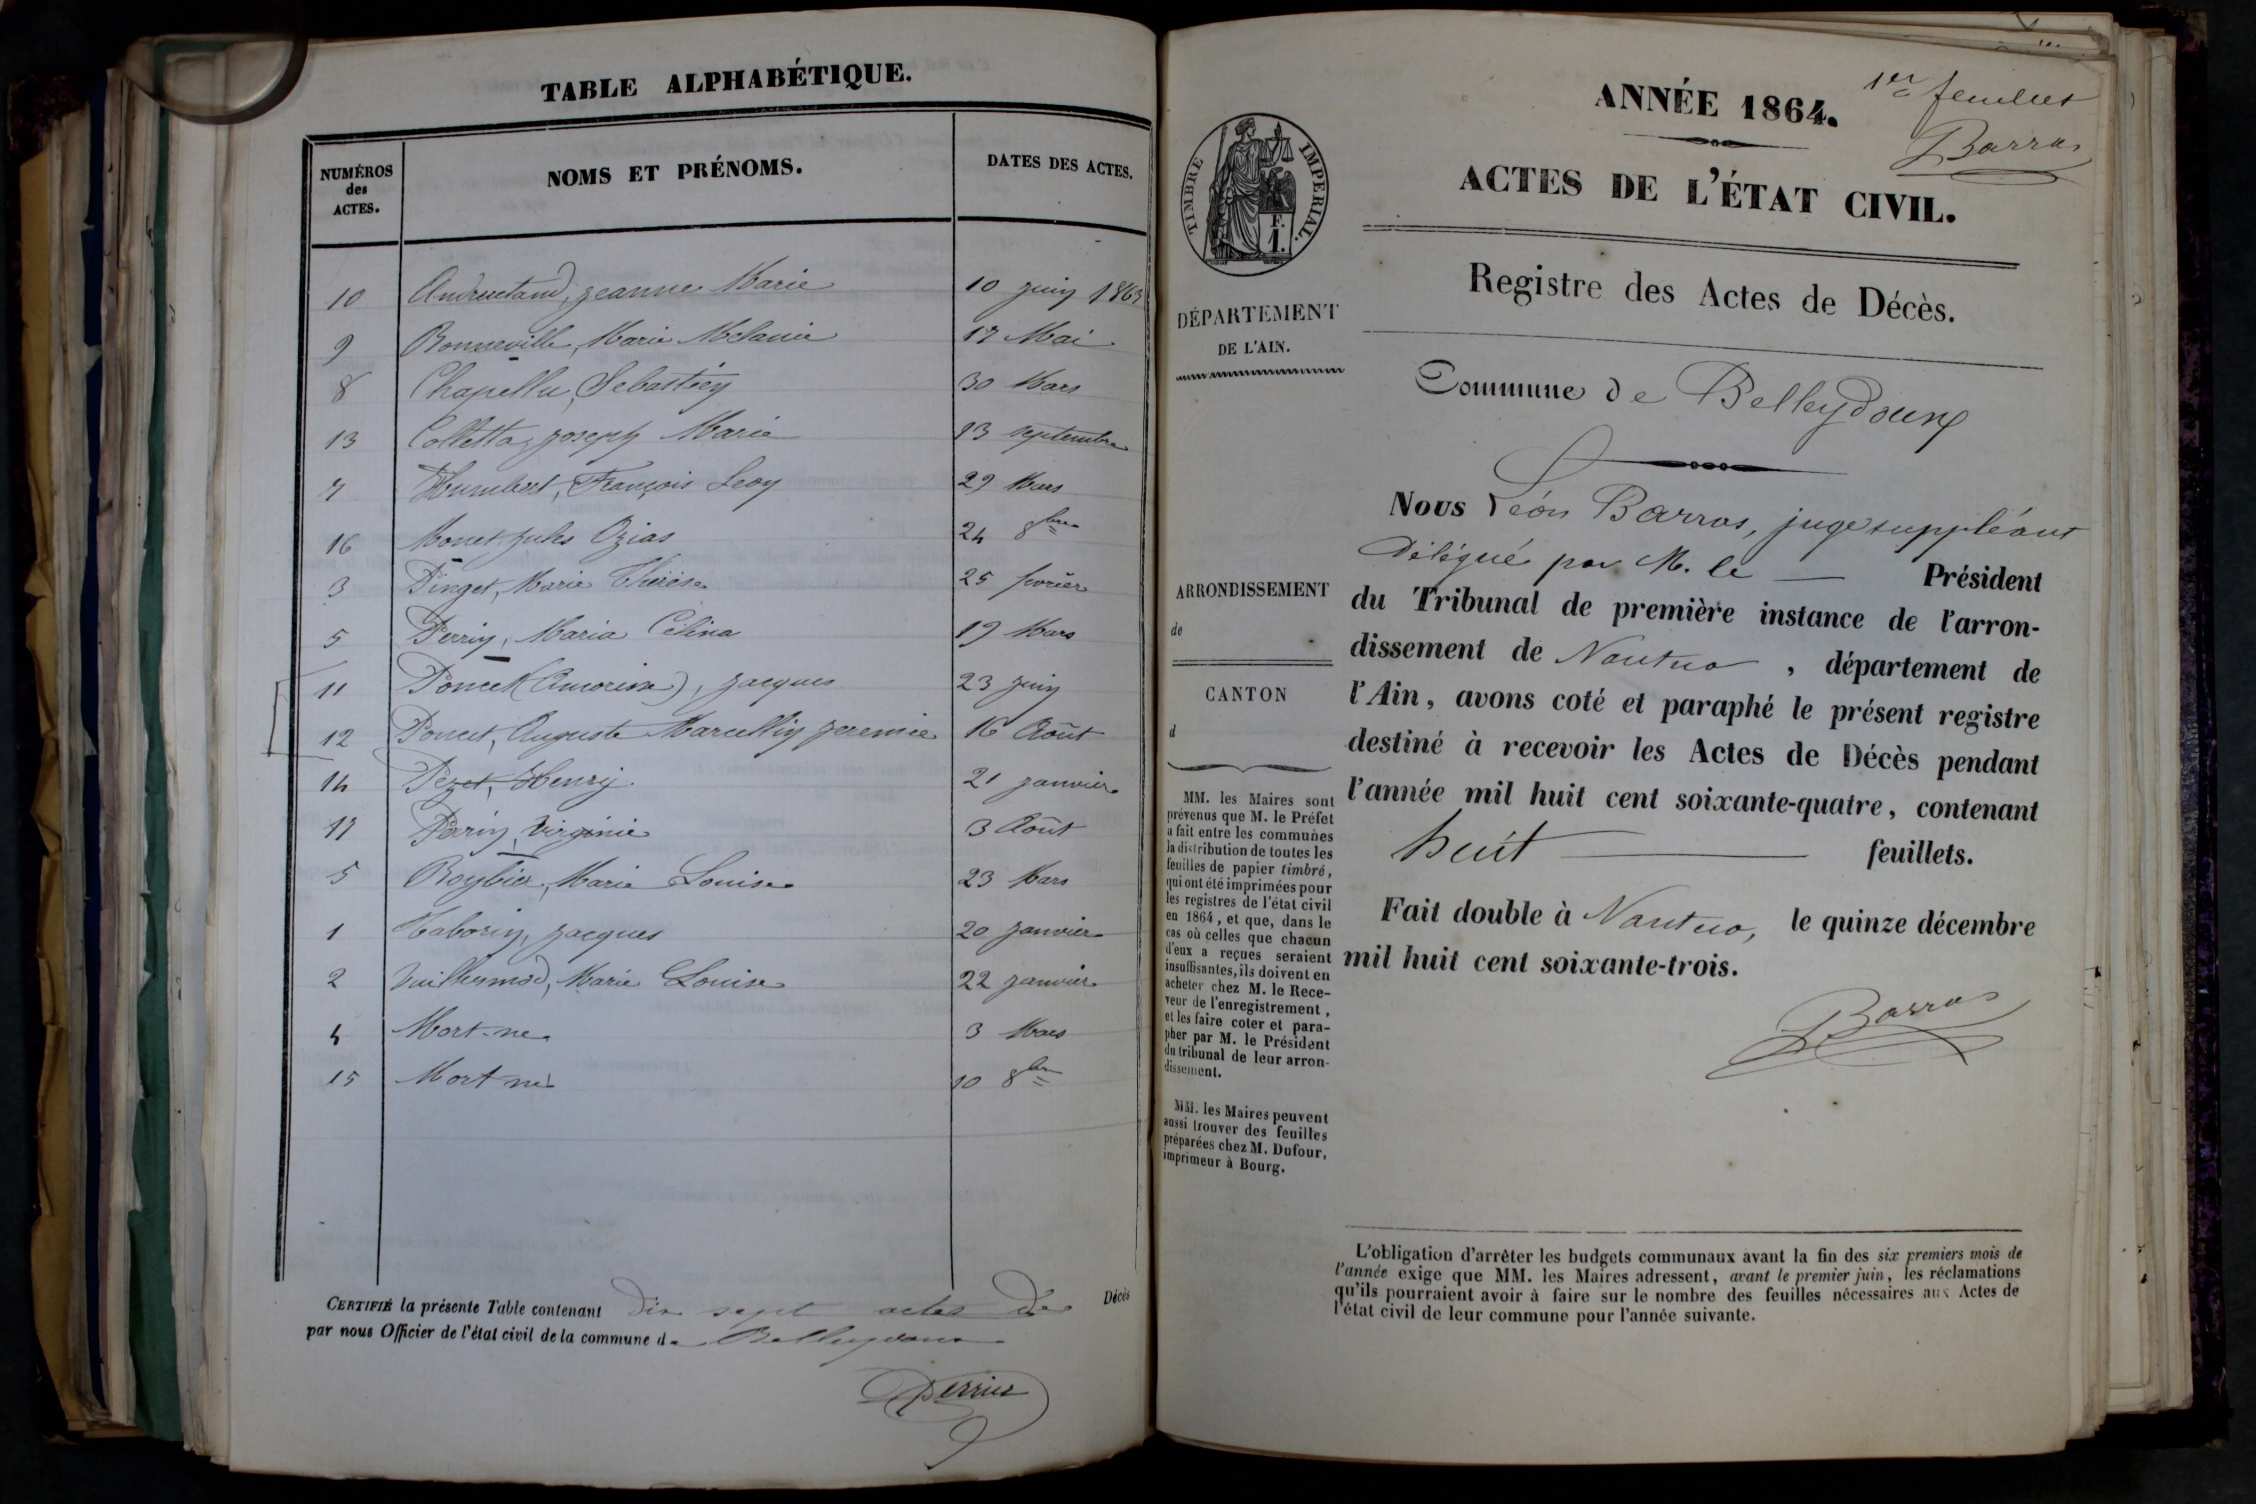 TABLE ALPHABÉTIQUE.
NUMÉROS des ACTES. NOMS ET PRÉNOMS. DATES DES ACTES.
10 Jeanne Marie 10 juin 1863
9 Bonneville, Marie Melanie 17 Mai
8 Chapellu, Sebastien 30 Mars
13 Colletta, Joseph Marie 13 septembre
7 Humbert, François Leon 29 Mars
16 Monet Jules Ozias 24 8bre
3 Pinget, Marie Thérèse 25 fevrier
5 Perrin, Maria Célina 19 Mars
11 Poncet ), Jacques 23 juin
12 Poncet, Auguste Marcellin Jeremie 16 Août
14 Henry. 21 janvier
17 Perrin, Virginie 3 Août
5 Marie Louise 23 Mars
1 Taborin, Jacques 20 janvier
2 Vuillermod, Marie Louise 22 janvier
4 Mort-ne 3 Mars
15 Mort né 10 8bre
CERTIFIÉ la présente Table contenant Dix sept actes de Décès
par nous Officier de l'état civil de la commune de Belleydoux
Perrier
1er feuillet
Barras
ANNÉE 1864.
ACTES DE L'ÉTAT CIVIL.
Registre des Actes de Décès.
TIMBRE IMPERIAL.
F.
1.
DÉPARTEMENT
DE L'AIN.
ARRONDISSEMENT
de
CANTON
d
MM. les Maires sont
prévenus que M. le Préfet
a fait entre les communes
la distribution de toutes les
feuilles de papier timbré,
qui ont été imprimées pour
les registres de l'état civil
en 1864, et que, dans le
cas où celles que chacun
d'eux a reçues seraient
insuffisantes, ils doivent en
acheter chez M. le Rece-
veur de l'enregistrement,
et les faire coter et para-
pher par M. le Président
du tribunal de leur arron-
dissement.
MM. les Maires peuvent
aussi trouver des feuilles
préparées chez M. Dufour,
imprimeur à Bourg.
Commune de Belleydoux
Nous Léon Barras, juge suppléant
délégué par M. le Président
du Tribunal de première instance de l'arron-
dissement de Nantua, département de
l'Ain, avons coté et paraphé le présent registre
destiné à recevoir les Actes de Décès pendant
l'année mil huit cent soixante-quatre, contenant
huit feuillets.
Fait double à Nantua, le quinze décembre
mil huit cent soixante-trois.
Barras
L'obligation d'arrêter les budgets communaux avant la fin des six premiers mois de
l'année exige que MM. les Maires adressent, avant le premier juin, les réclamations
qu'ils pourraient avoir à faire sur le nombre des feuilles nécessaires aux Actes de
l'état civil de leur commune pour l'année suivante.